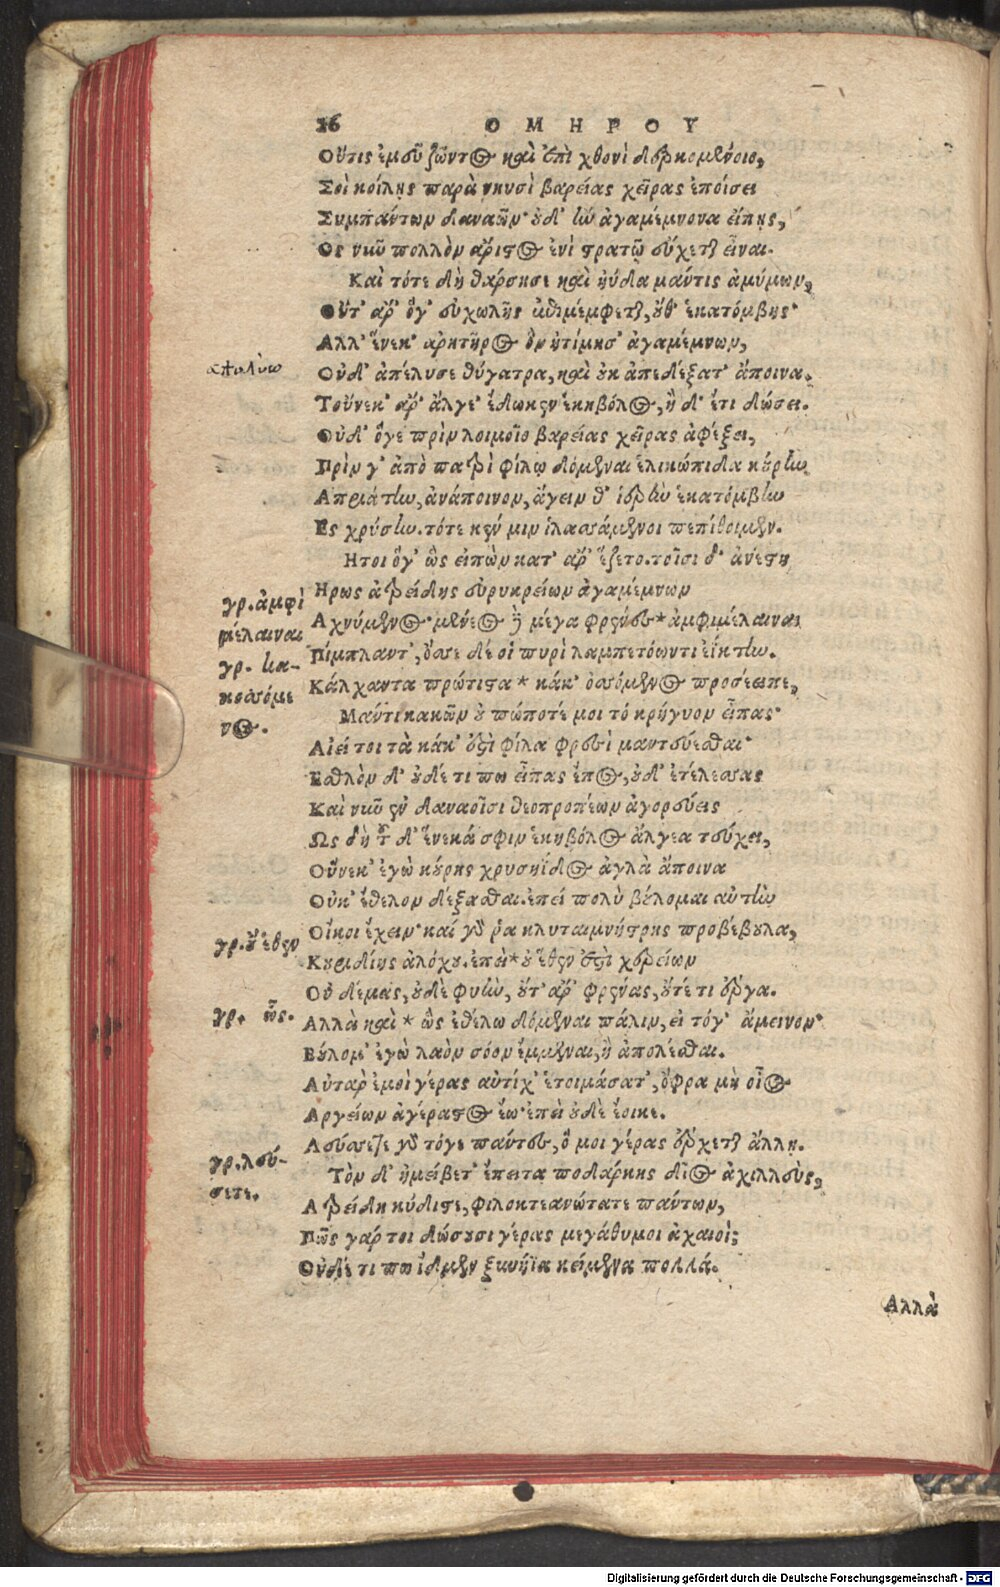 26 ΟΜΗΡΟΥ
Οὔτις ἐμεῦ ζῶντος καὶ ἐπὶ χθονὶ δερκομένοιο,
Σοὶ κοίλῃς παρὰ νηυσὶ βαρείας χεῖρας ἐποίσει
Συμπάντων δαναῶν· οὐδ' ἢν ἀγαμέμνονα εἴπῃς,
Ος νῦν πολλὸν ἄριστος ἐνὶ στρατῷ εὔχεται εἶναι.
Καὶ τότε δὴ θάρσησε καὶ ηὔδα μάντις ἀμύμων,
Οὔτ' ἄρ' ὅγ' εὐχωλῆς ἐπιμέμφεται, οὔθ' ἑκατόμβης·
Αλλ' ἕνεκ' ἀρητῆρος ὃν ἠτίμησ' ἀγαμέμνων,
απολύω
Οὐδ' ἀπέλυσε θύγατρα, καὶ οὐκ ἀπεδέξατ' ἄποινα.
Τοὔνεκ' ἄρ' ἄλγε' ἔδωκεν ἑκηβόλος, ἠδ' ἔτι δώσει.
Οὐδ' ὅγε πρὶν λοιμοῖο βαρείας χεῖρας ἀφέξει,
Πρὶν γ' ἀπὸ πατρὶ φίλῳ δόμεναι ἑλικώπιδα κούρην
Απριάτην, ἀνάποινον, ἄγειν θ' ἱερὴν ἑκατόμβην
Ες χρύσην. τότε κεν μιν ἱλασσάμενοι πεπίθοιμεν.
Ητοι ὅγ' ὣς εἰπὼν κατ' ἄρ' ἕζετο. τοῖσι δ' ἀνέστη
Ηρως ἀτρείδης εὐρυκρείων ἀγαμέμνων
γρ. ἀμφὶ
μέλαιναι
Αχνύμενος· μένεος δὲ μέγα φρένες * ἀμφιμέλαιναι
Πίμπλαντ', ὄσσε δέ οἱ πυρὶ λαμπετόωντι ἐΐκτην.
γρ. κα-
κοσσόμε
νος.
Κάλχαντα πρώτιστα * κάκ' ὀσσόμενος προσέειπε,
Μάντι κακῶν οὐ πώποτέ μοι τὸ κρήγυον εἶπας·
Αἰεί τοι τὰ κάκ' ἐστὶ φίλα φρεσὶ μαντεύεσθαι·
Εσθλὸν δ' οὐδέ τι πω εἶπας ἔπος, οὐδ' ἐτέλεσσας
Καὶ νῦν ἐν δαναοῖσι θεοπροπέων ἀγορεύεις
Ως δὴ τοῦδ' ἕνεκά σφιν ἑκηβόλος ἄλγεα τεύχει,
Οὕνεκ' ἐγὼ κούρης χρυσηΐδος ἀγλὰ ἄποινα
Οὐκ' ἔθελον δέξασθαι. ἐπεὶ πολὺ βούλομαι αὐτὴν
Οἴκοι ἔχειν· καί γάρ ῥα κλυταιμνήστρης προβέβουλα,
γρ. οὔ ἑθεν
Κουριδίης ἀλόχου. ἐπεὶ * οὔ ἕθεν ἐστὶ χερείων
Οὐ δέμας, οὐδὲ φυὴν, οὔτ' ἄρ' φρένας, οὔτέ τι ἔργα.
γρ. ὧς.
Αλλὰ καὶ * ὣς ἐθέλω δόμεναι πάλιν, εἰ τόγ' ἄμεινον·
Βούλομ' ἐγὼ λαὸν σόον ἔμμεναι, ἢ ἀπολέσθαι.
Αὐτὰρ ἐμοὶ γέρας αὐτίχ' ἑτοιμάσατ', ὄφρα μὴ οἶος
Αργείων ἀγέραστος ἔω· ἐπεὶ οὐδὲ ἔοικε.
γρ. λεύ-
σετε.
Λεύσσετε γὰρ τόγε πάντες, ὅ μοι γέρας ἔρχεται ἄλλῃ.
Τὸν δ' ἠμείβετ' ἔπειτα ποδάρκης δῖος ἀχιλλεὺς,
Ατρείδη κύδιστε, φιλοκτεανώτατε πάντων,
Πῶς γάρ τοι δώσουσι γέρας μεγάθυμοι ἀχαιοί;
Οὐδέ τι πω ἴδμεν ξυνήϊα κείμενα πολλά.
Αλλὰ
Digitalisierung gefördert durch die Deutsche Forschungsgemeinschaft - DFG